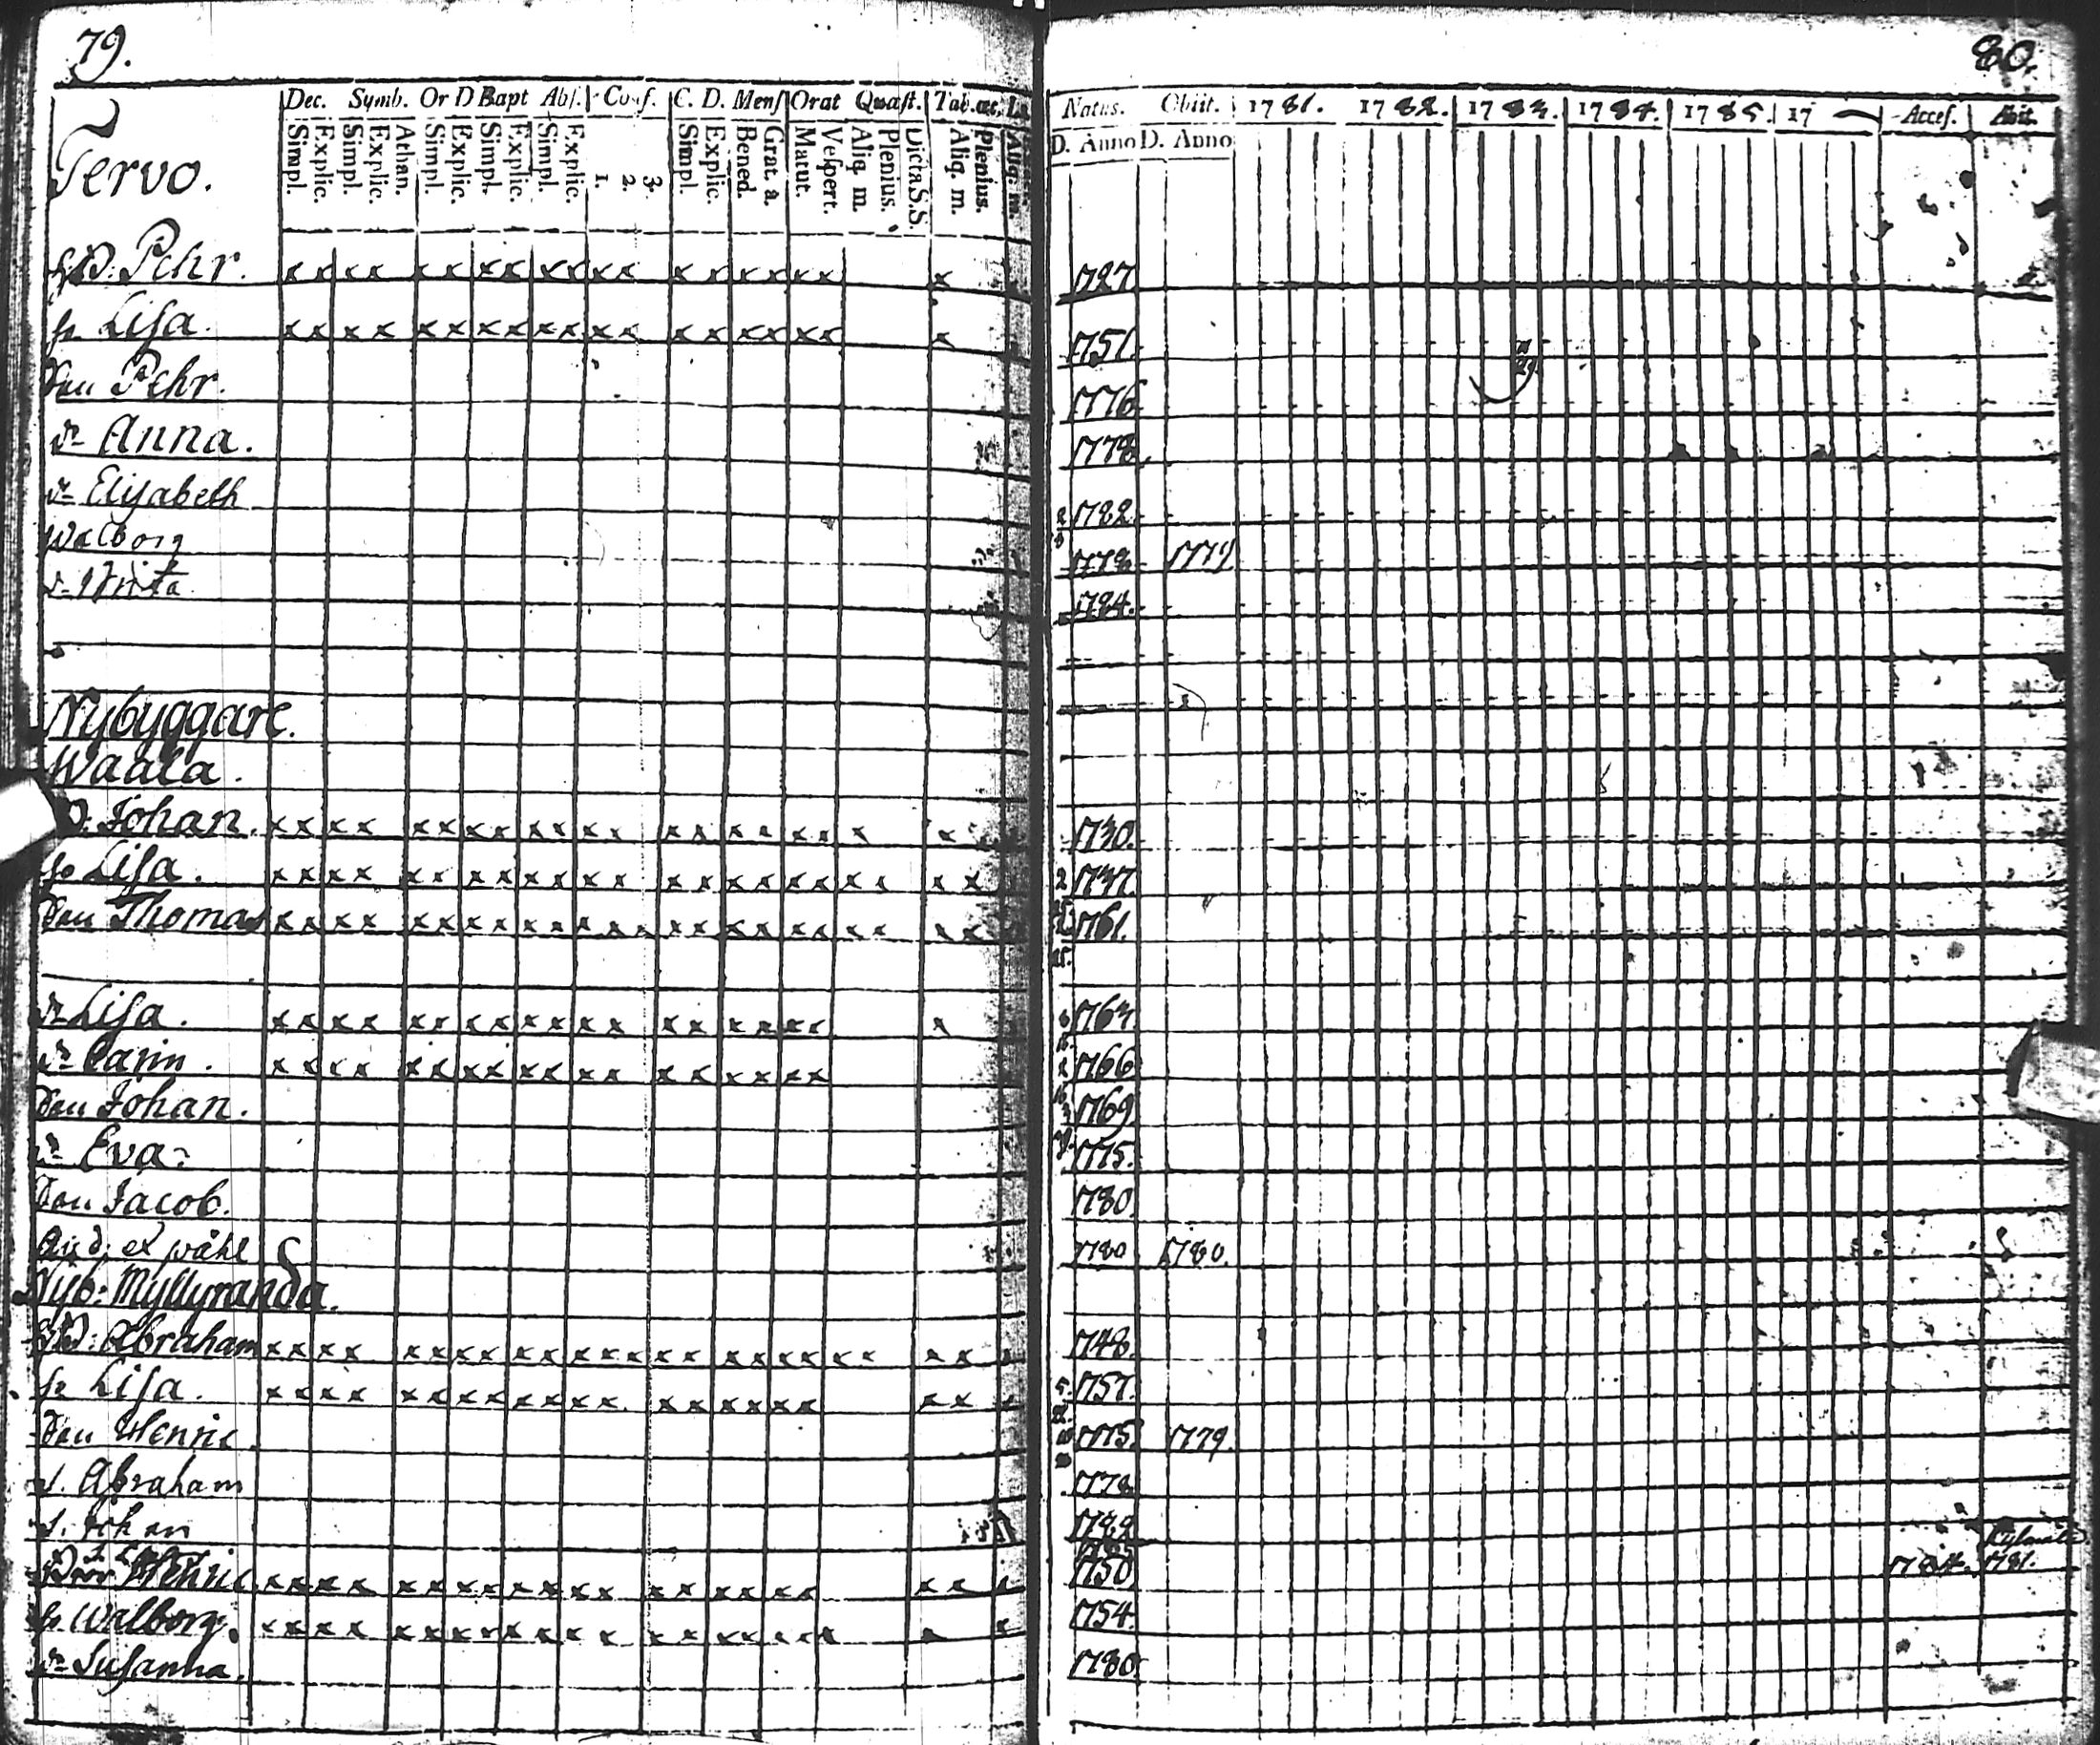 79.
Dec. Symb. Or D Bapt Abs. Conf. C. D. Mens Orat Quæst. Tab. œc.
Simpl. Explic. Simpl. Explic. Athan. Simpl. Explic. Simpl. Explic. Simpl. Explic. 1. 2. 3. Simpl. Explic. Bened. Grat. a. Matut. Vespert. Aliq. m. Plenius. Dicta S.S. Aliq. m. Plenius. Aliq. m.
Tervo.
Pehr.
Lisa.
Son Pehr.
Anna.
Elisabeth
Walborg
Brita
Nybyggare.
Waala.
Johan.
Lisa.
Son Thomas
Lisa.
Carin.
Son Johan.
Eva.
Son Jacob.
Nyb: Myllyranda.
Abraham
Lisa.
Son Henric
Abraham
Johan
Henric
Walborg.
Susanna.
80.
Natus. Obiit. 1781. 1782. 1783. 1784. 1785. 17 Acces. Abit.
D. Anno D. Anno
1727.
1751.
1776
1778.
1782.
1778 1779
1784.
1730.
1737.
1761.
1763.
1766
1769
1775.
1780
1780 1780.
1748.
1757.
1775. 1779.
1778.
1750 1784. 1781.
1754.
1780.